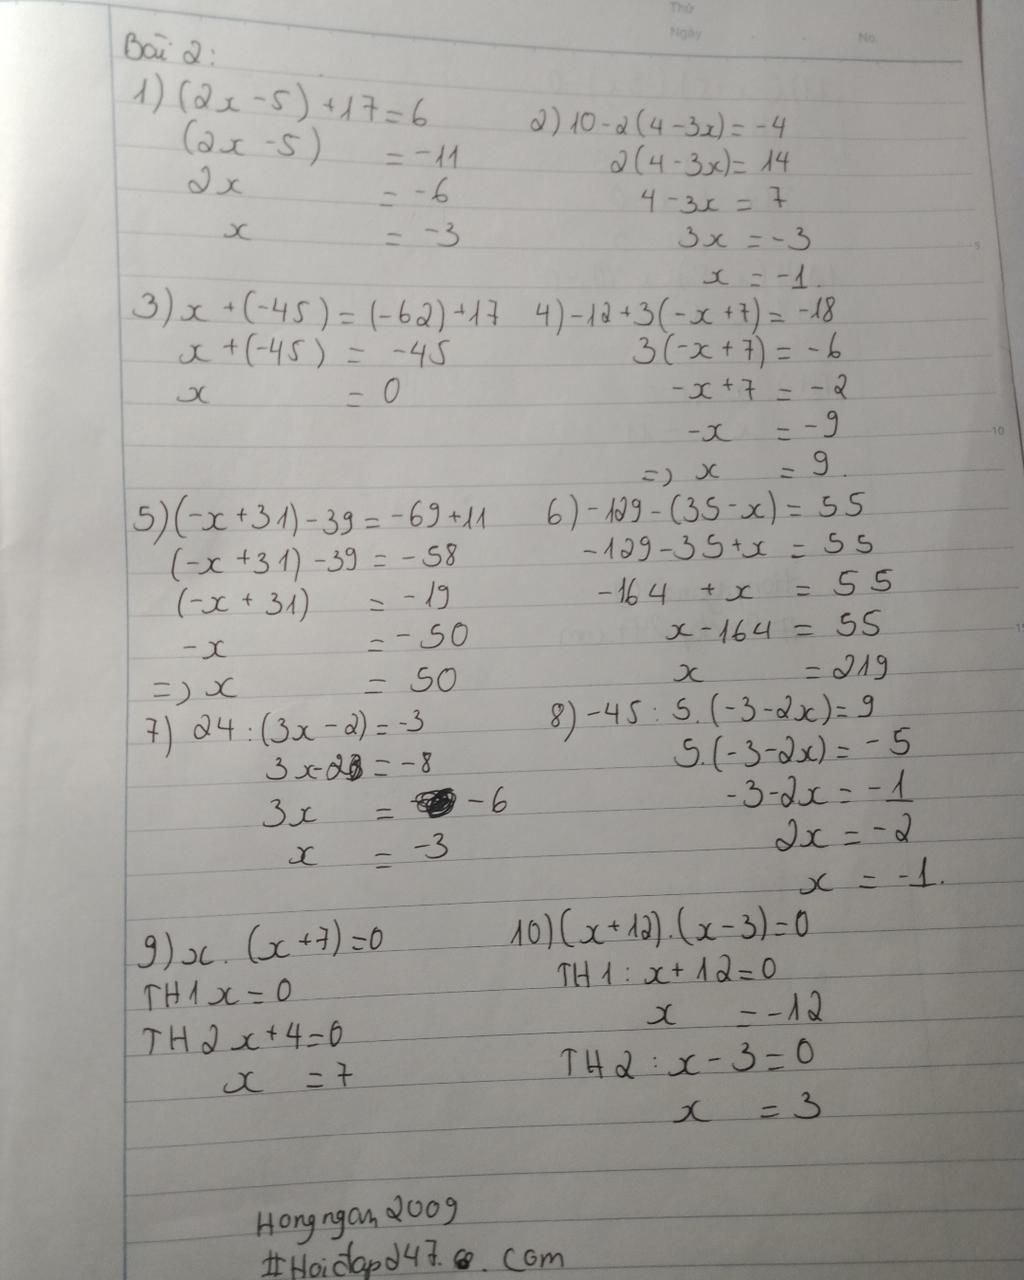 Thứ
Ngày
No.
Bài 2:
1) (2x - 5) + 17 = 6
(2x - 5) = -11
2x = -6
x = -3
2) 10 - 2(4 - 3x) = -4
2(4 - 3x) = 14
4 - 3x = 7
3x = -3
x = -1.
3) x + (-45) = (-62) + 17
x + (-45) = -45
x = 0
4) -12 + 3(-x + 7) = -18
3(-x + 7) = -6
-x + 7 = -2
-x = -9
=> x = 9.
5) (-x + 31) - 39 = -69 + 11
(-x + 31) - 39 = -58
(-x + 31) = -19
-x = -50
=> x = 50
6) -129 - (35 - x) = 55
-129 - 35 + x = 55
-164 + x = 55
x - 164 = 55
x = 219
7) 24 : (3x - 2) = -3
3x - 2 = -8
3x = -6
x = -3
8) -45 : 5.(-3 - 2x) = 9
5.(-3 - 2x) = -5
-3 - 2x = -1
2x = -2
x = -1.
9) x. (x + 7) = 0
TH1 x = 0
TH2 x + 4 = 0
x = 7
10) (x + 12).(x - 3) = 0
TH1: x + 12 = 0
x = -12
TH2: x - 3 = 0
x = 3
5
10
Hongngan2009
#Hoidap247.com